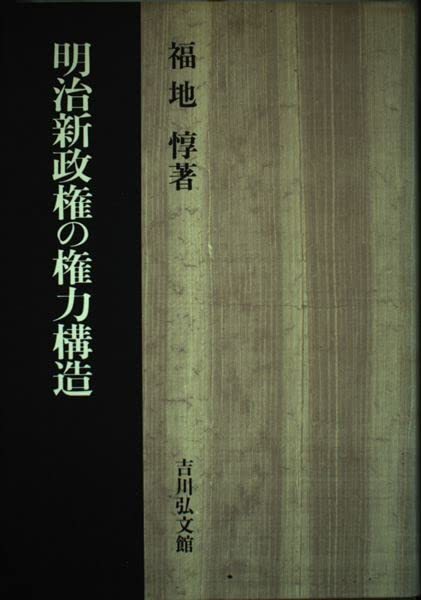 福地 惇著
明治新政権の権力構造
吉川弘文館